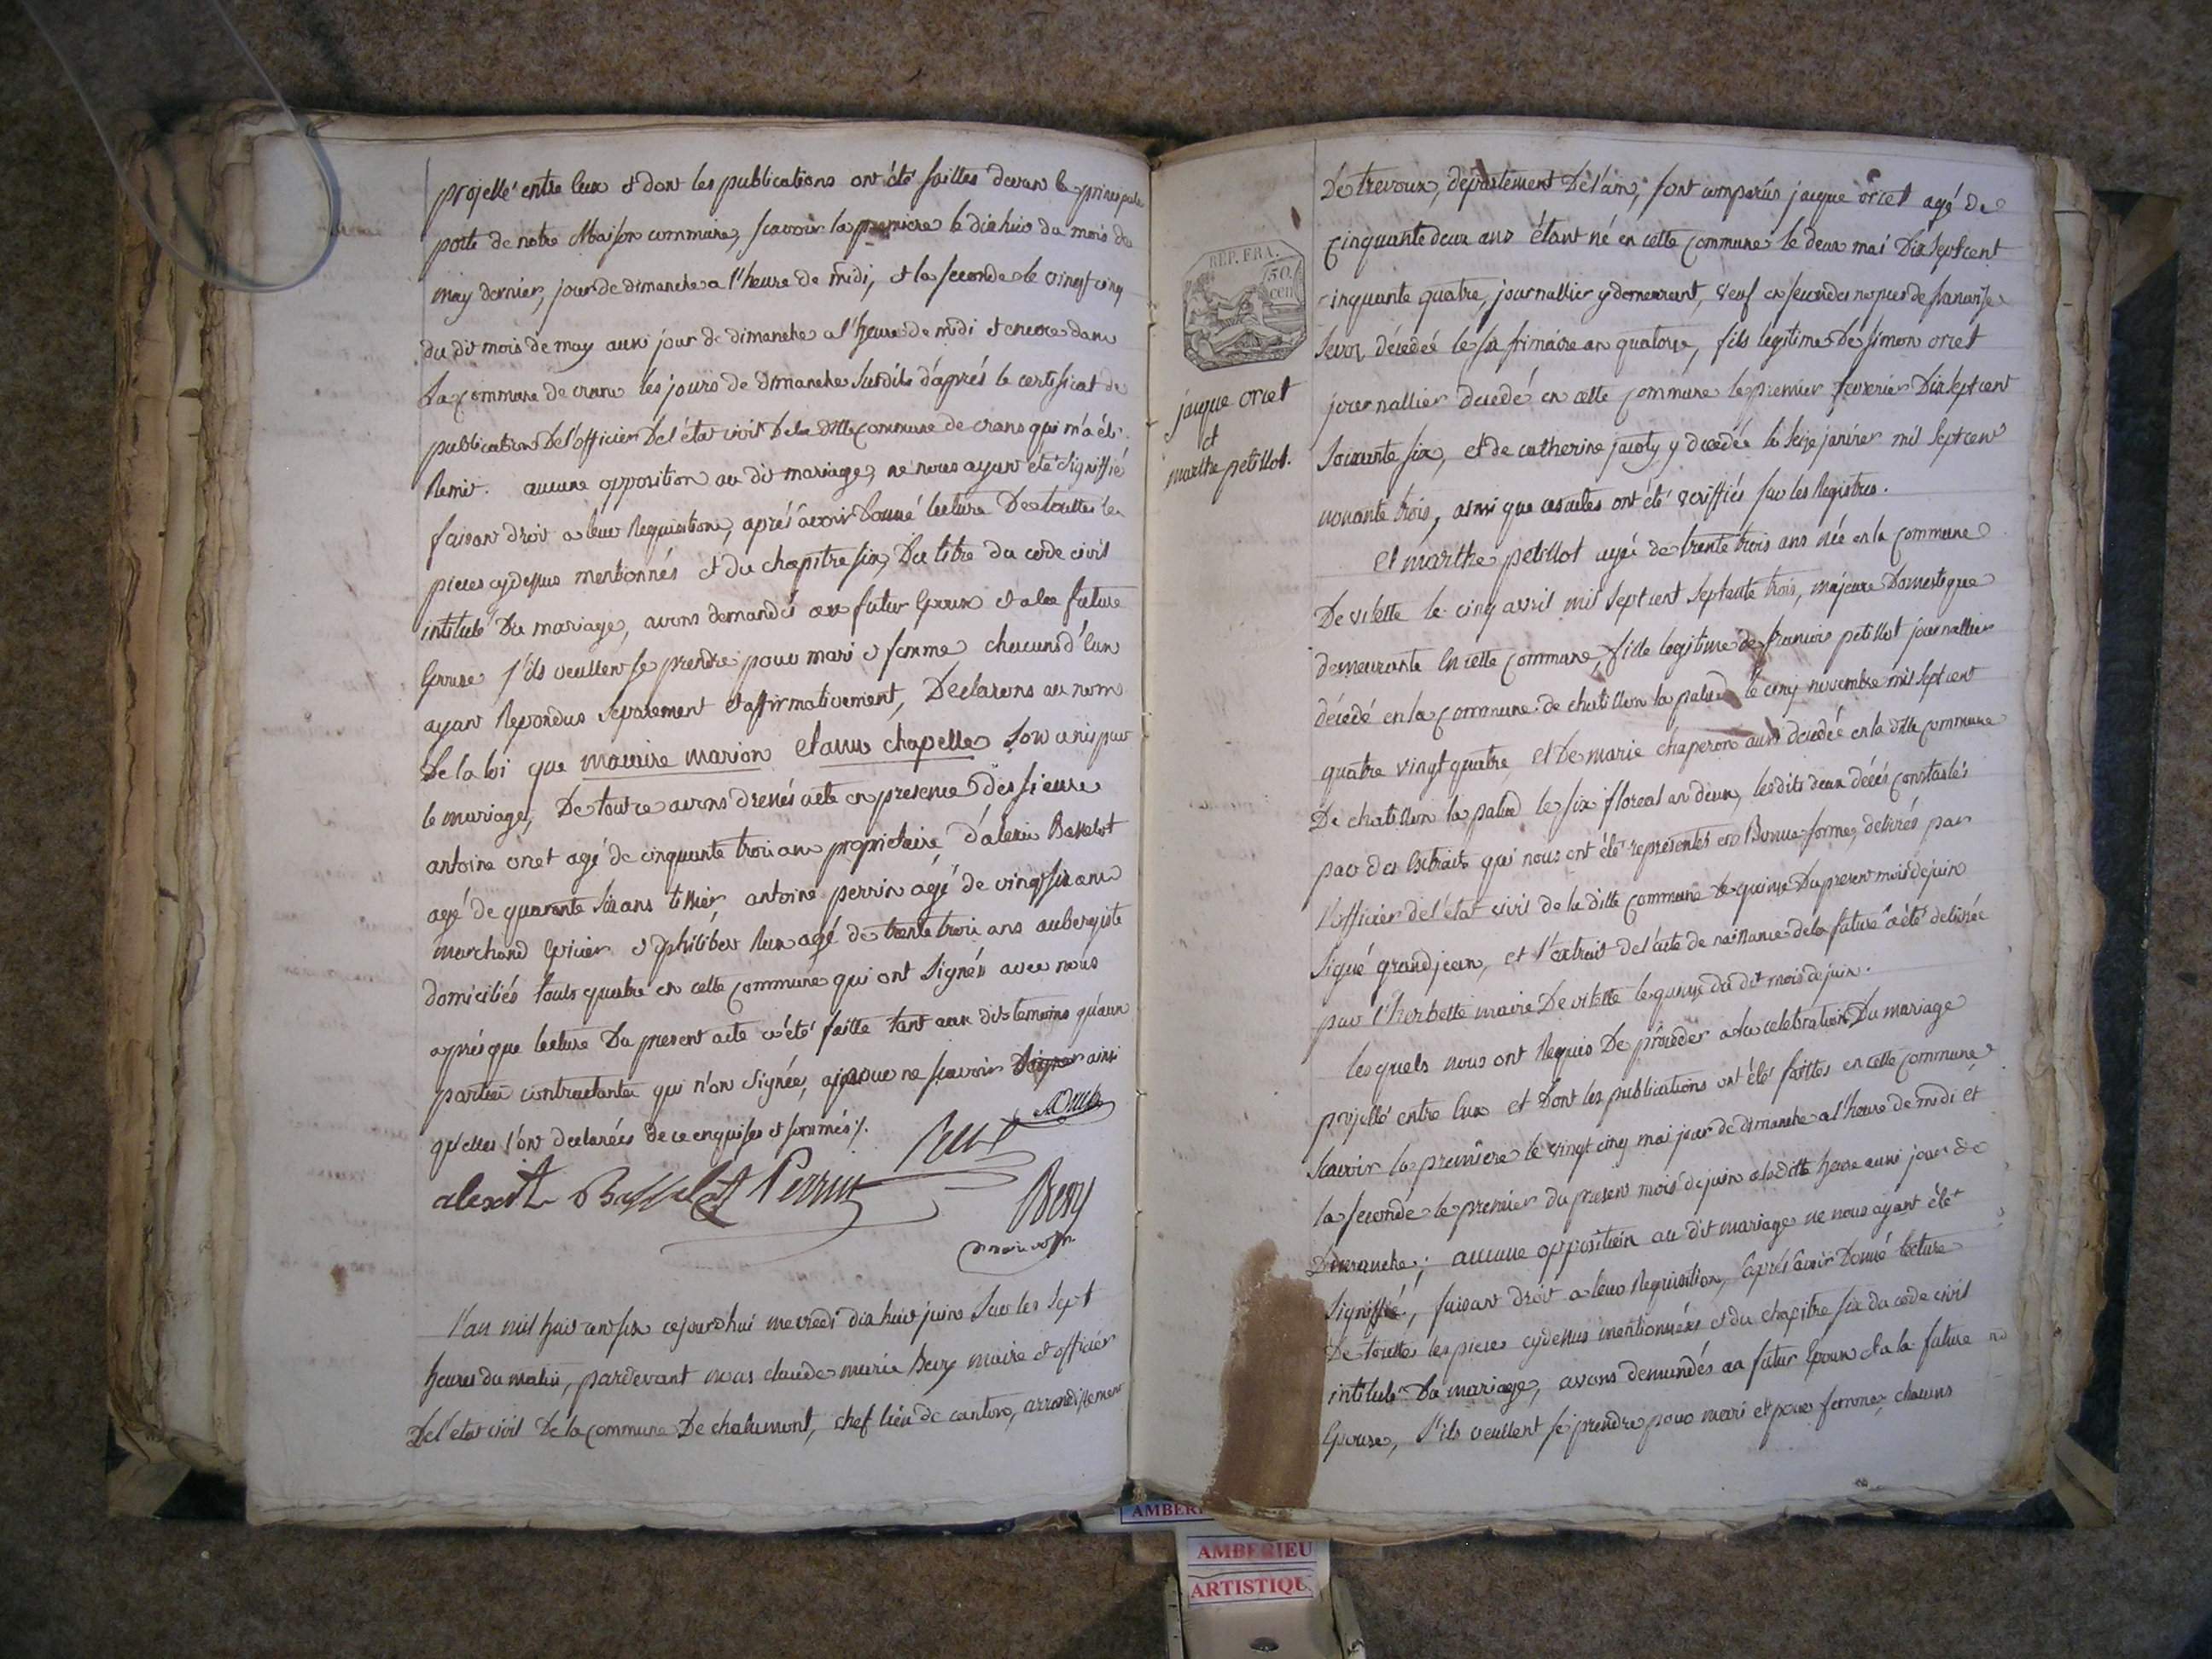 projetté entre Eux et dont les publications ont été faittes devant la principale
porte de notre Maison commune, scavoir la premiere le dixhuit du mois de
may dernier, jour de dimanche a l'heure de midi, et la seconde le vingt cinq
du dit mois de may aussi jour de dimanche a l'heure de midi et encore dans
la commune de crans les jours de dimanche susdits d'aprés le certificat de
publication De l'officier Del état civil De la Ditte commune de crans qui m'a été
Remis. aucune opposition au dit mariage, ne nous ayant été signiffié
faisant droit a leur Requisition, aprés avoir Donné lecture De touttes les
pieces cydessus mentionnés et du chapitre six, Du titre du code civil
intitulé Du mariage, avons demandés au futur Epoux et a la future
Epouse s'ils veullent se prendre pour mari et femme chacuns d'Eux
ayant Repondus separement et affirmativement, Declarons au nom
De la loi que marion et chapelle sont unis par
le mariage, De tout ce avons dressés acte en presence des sieurs
antoine orcet agé de cinquante trois ans propriétaire, d'alexis Basselot
agé de quarante six ans tissier antoine perrin agé de vingt six ans
marchand Epicier et philibert Rux agé de trente trois ans aubergiste
domiciliés touts quatre en cette commune qui ont signés avec nous
aprés que lecture Du present acte a été faitte tant aux dits temoins qu'aux
parties contractantes qui n'ont signée, ne scavoir ainsi
qu'elles l'ont declarées de ce enquises et sommés ./.
Basselot Perrin
Bery
maire
L'an mil huit cent six cejourdhui mecredi dix huit juin sur les sept
heures du matin, pardevant nous claude marie Bery maire et officier
Del état civil De la commune De chalamont, chef lieu de canton, arrondissement
REP. FRA.
50
cen
jacque orcet
et
marthe petillot.
De trevoux, departement De l'ain, sont comparus jacque orcet agé de
cinquante deux ans étant né en cette commune le deux mai Dix sept cent
cinquante quatre, journallier y demeurant, veuf en secondes nopces de francoise
décedeé le six frimaire an quatorze, fils legitime De simon orcet
journallier decedé en cette commune le premier fevrier Dix sept cent
soixante six, et de catherine jacoty y decedée le seize janvier mil sept cent
nonante trois, ainsi que ces actes ont été veriffiés sur les Registres.
et marthe petillot agé de trente trois ans née en la commune
De vilette le cinq avril mil sept cent septente trois, majeure Domestique
demeurante En cette commune, fille legitime de francois petillot journallier
décedé en la commune de chatillon la palud le cinq novembre mil sept cent
quatre vingt quatre et De marie chaperon aussi decedée en la ditte commune
De chatillon la palud le six floreal an deux, lesdits deux décés constatés
par des Extraits qui nous ont été representés en Bonne forme, delivrés par
l'officier de l'état civil de la ditte commune le quinze Du present mois de juin
signé grandjean, et l'extrait de l'acte de naissance de la future a été delivrée
par l'herbette maire De vilette le quinze du dit mois de juin.
lesquels nous ont Requis De procéder a la celebration Du mariage
projetté entre Eux et Dont les publications ont été faittes en cette commune
scavoir la premiere le vingt cinq mai jour de dimanche a l'heure de midi et
la seconde le premier du present mois de juin a laditte heure aussi jour de
Dimanche; aucune opposition au dit mariage ne nous ayant été
signiffié, faisant droit a leur Requisition, aprés avoir Donné lecture
De touttes les pieces cydessus mentionnées et du chapitre six du code civil
intitulé Du mariage, avons demandés au futur Epoux et a la future
Epouse, s'ils veullent se prendre pour mari et pour femme, chacuns
AMBERI
AMBERIEU
ARTISTIQU